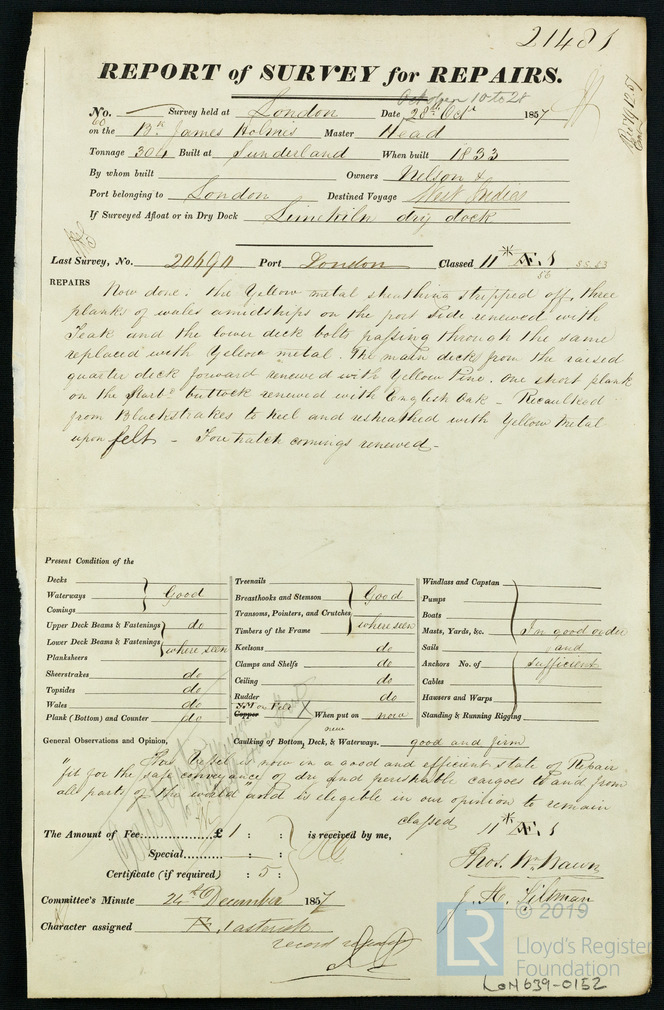 21481
REPORT of SURVEY for REPAIRS.
October 10 to 28
No. 60 Survey held at London Date 28th Octr 1857
on the Bk James Holmes Master Head
Tonnage 304 Built at Sunderland When built 1833
By whom built Owners Nelson &
Port belonging to London Destined Voyage West Indies
If Surveyed Afloat or in Dry Dock Limekiln dry dock
Last Survey, No. 20690 Port London Classed 11 * Æ 1
56
REPAIRS
Now done: The Yellow metal sheathing stripped off, three
planks of wales amidships on the port side renewed with
Teak and the lower deck bolts passing through the same
replaced with Yellow metal. The main deck from the raised
quarter deck forward renewed with Yellow Pine. one short plank
on the Starbd buttock renewed with English Oak - Recaulked
from Blackstrakes to keel and resheathed with Yellow Metal
upon felt - Fore hatch comings renewed -
Present Condition of the
Decks
Waterways Good
Comings
Upper Deck Beams & Fastenings do
Lower Deck Beams & Fastenings where seen
Planksheers
Sheerstrakes do
Topsides do
Wales do
Plank (Bottom) and Counter do
Treenails
Breasthooks and Stemson Good
Transoms, Pointers, and Crutches
Timbers of the Frame where seen
Keelsons do
Clamps and Shelfs do
Ceiling do
Rudder do
YM on Felt
Copper When put on now
new
Windlass and Capstan
Pumps
Boats
Masts, Yards, &c. In good order
Sails and
Anchors No. of sufficient
Cables
Hawsers and Warps
Standing & Running Rigging
General Observations and Opinion, Caulking of Bottom, Deck, & Waterways. good and firm
"This Vessel is now in a good and efficient state of Repair
fit for the safe conveyance of dry and perishable cargoes to and from
all parts of the world" and is eligible in our opinion to remain
classed 11 * Æ 1
The Amount of Fee £ 1 : : is received by me,
Special : :
Certificate (if required) : 5 :
Thos. Wm Wawn
J. H. Tillman
Committee's Minute 24th December 1857
Character assigned Æ 1 asterisk
© 2019
LR
Lloyd's Register
Foundation
LON639-0152